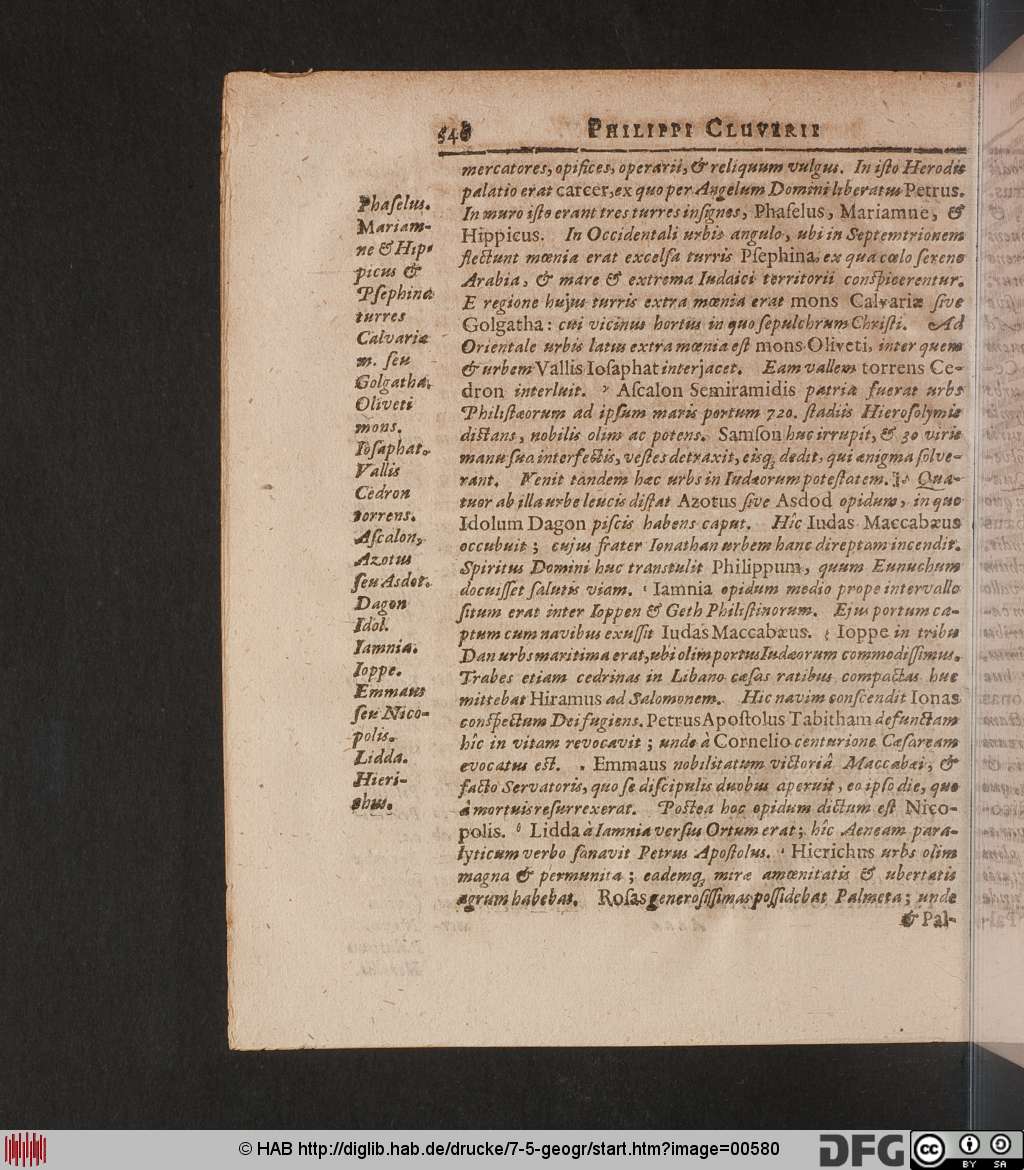 546 PHILIPPI CLUVERII
mercatores, opifices, operarii, & reliquum vulgus. In iſto Herodis
palatio erat carcer, ex quo per Angelum Domini liberatus Petrus.
In muro iſto erant tres turres inſignes, Phaſelus, Mariamne, &
Hippicus. In Occidentali urbis angulo, ubi in Septemtrionem
flectunt mœnia erat excelſa turris Pſephina, ex qua cœlo ſereno
Arabia, & mare & extrema Iudaici territorii conſpicerentur.
E regione hujus turris extra mœnia erat mons Calvariæ ſive
Golgatha: cui vicinus hortus in quo ſepulchrum Chriſti. Ad
Orientale urbis latus extra mœnia eſt mons Oliveti, inter quem
& urbem Vallis Ioſaphat interjacet. Eam vallem torrens Ce-
dron interluit. Aſcalon Semiramidis patria fuerat urbs
Philiſtæorum ad ipſum maris portum 720. ſtadiis Hieroſolymis
diſtans, nobilis olim ac potens. Samſon huc irrupit, & 30 viris
manu ſua interfectis, veſtes detraxit, eisq; dedit, qui ænigma ſolve-
rant. Venit tandem hæc urbs in Iudæorum poteſtatem. Qua-
tuor ab illa urbe leucis diſtat Azotus ſive Asdod opidum, in quo
Idolum Dagon piſcis habens caput. Hîc Iudas Maccabæus
occubuit; cujus frater Ionathan urbem hanc direptam incendit.
Spiritus Domini huc transtulit Philippum, quum Eunuchum
docuiſſet ſalutis viam. Iamnia opidum medio prope intervallo
ſitum erat inter Ioppen & Geth Philiſtinorum. Ejus portum ca-
ptum cum navibus exuſſit Iudas Maccabæus. Ioppe in tribu
Dan urbs maritima erat, ubi olim portus Iudæorum commodiſſimus.
Trabes etiam cedrinas in Libano cæſas ratibus compactas huc
mittebat Hiramus ad Salomonem. Hic navim conſcendit Ionas
conſpectum Dei fugiens. Petrus Apoſtolus Tabitham defunctam
hîc in vitam revocavit; unde à Cornelio centurione Cæſaream
evocatus eſt. Emmaus nobilitatum victoriâ Maccabæi, &
facto Servatoris, quo ſe diſcipulis duobus aperuit, eo ipſo die, quo
à mortuis reſurrexerat. Poſtea hoc opidum dictum eſt Nico-
polis. Lidda à Iamnia verſus Ortum erat; hîc Aeneam para-
lyticum verbo ſanavit Petrus Apoſtolus. Hierichus urbs olim
magna & permunita; eademq; miræ amœnitatis & ubertatis
agrum habebat. Roſas generoſiſſimas poſſidebat Palmeta; unde
& Pal-
Phaſelus.
Mariam-
ne & Hip-
picus &
Pſephina
turres
Calvariæ
m. ſeu
Golgatha.
Oliveti
mons.
Ioſaphat.
Vallis
Cedron
torrens.
Aſcalon,
Azotus
ſeu Asdot.
Dagon
Idol.
Iamnia.
Ioppe.
Emmaus
ſeu Nico-
polis.
Lidda.
Hieri-
chus.
© HAB http://diglib.hab.de/drucke/7-5-geogr/start.htm?image=00580
DFG
cc
BY SA